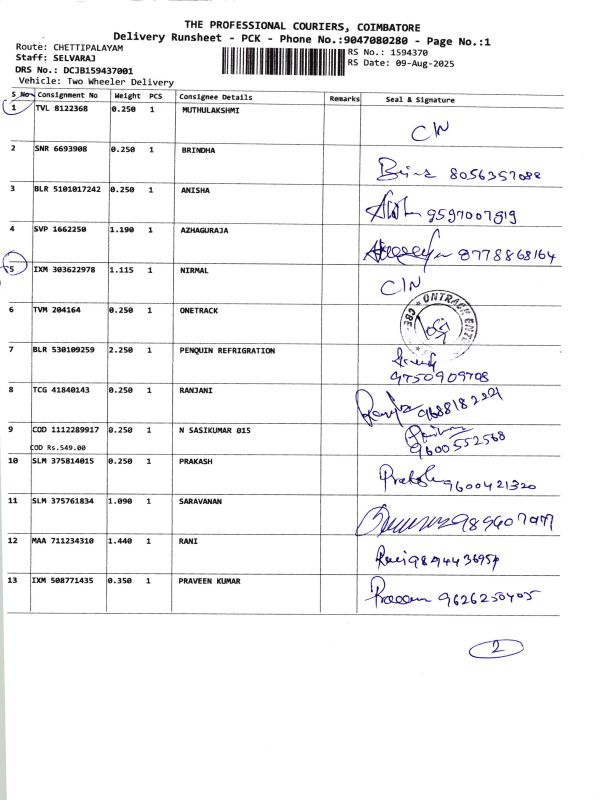 THE PROFESSIONAL COURIERS, COIMBATORE
Delivery Runsheet - PCK - Phone No.:9047080280 - Page No.:1
Route: CHETTIPALAYAM
RS No.: 1594370
Staff: SELVARAJ
RS Date: 09-Aug-2025
DRS No.: DCJB159437001
Vehicle: Two Wheeler Delivery
S No Consignment No Weight PCS Consignee Details Remarks Seal & Signature
1 TVL 8122368 0.250 1 MUTHULAKSHMI
C/N
2 SNR 6693908 0.250 1 BRINDHA
8056357088
3 BLR 5101017242 0.250 1 ANISHA
9597007819
4 SVP 1662250 1.190 1 AZHAGURAJA
8778868164
5 IXM 303622978 1.115 1 NIRMAL
C/N
6 TVM 204164 0.250 1 ONETRACK
ONTRACK ENTE
CBE
7 BLR 530109259 2.250 1 PENQUIN REFRIGRATION
9750909708
8 TCG 41840143 0.250 1 RANJANI
9688182221
9 COD 1112289917 0.250 1 N SASIKUMAR 015
COD Rs.549.00
9600552568
10 SLM 375814015 0.250 1 PRAKASH
Prakash 9600421320
11 SLM 375761834 1.090 1 SARAVANAN
12 MAA 711234310 1.440 1 RANI
Rani
13 IXM 508771435 0.350 1 PRAVEEN KUMAR
9626250405
2